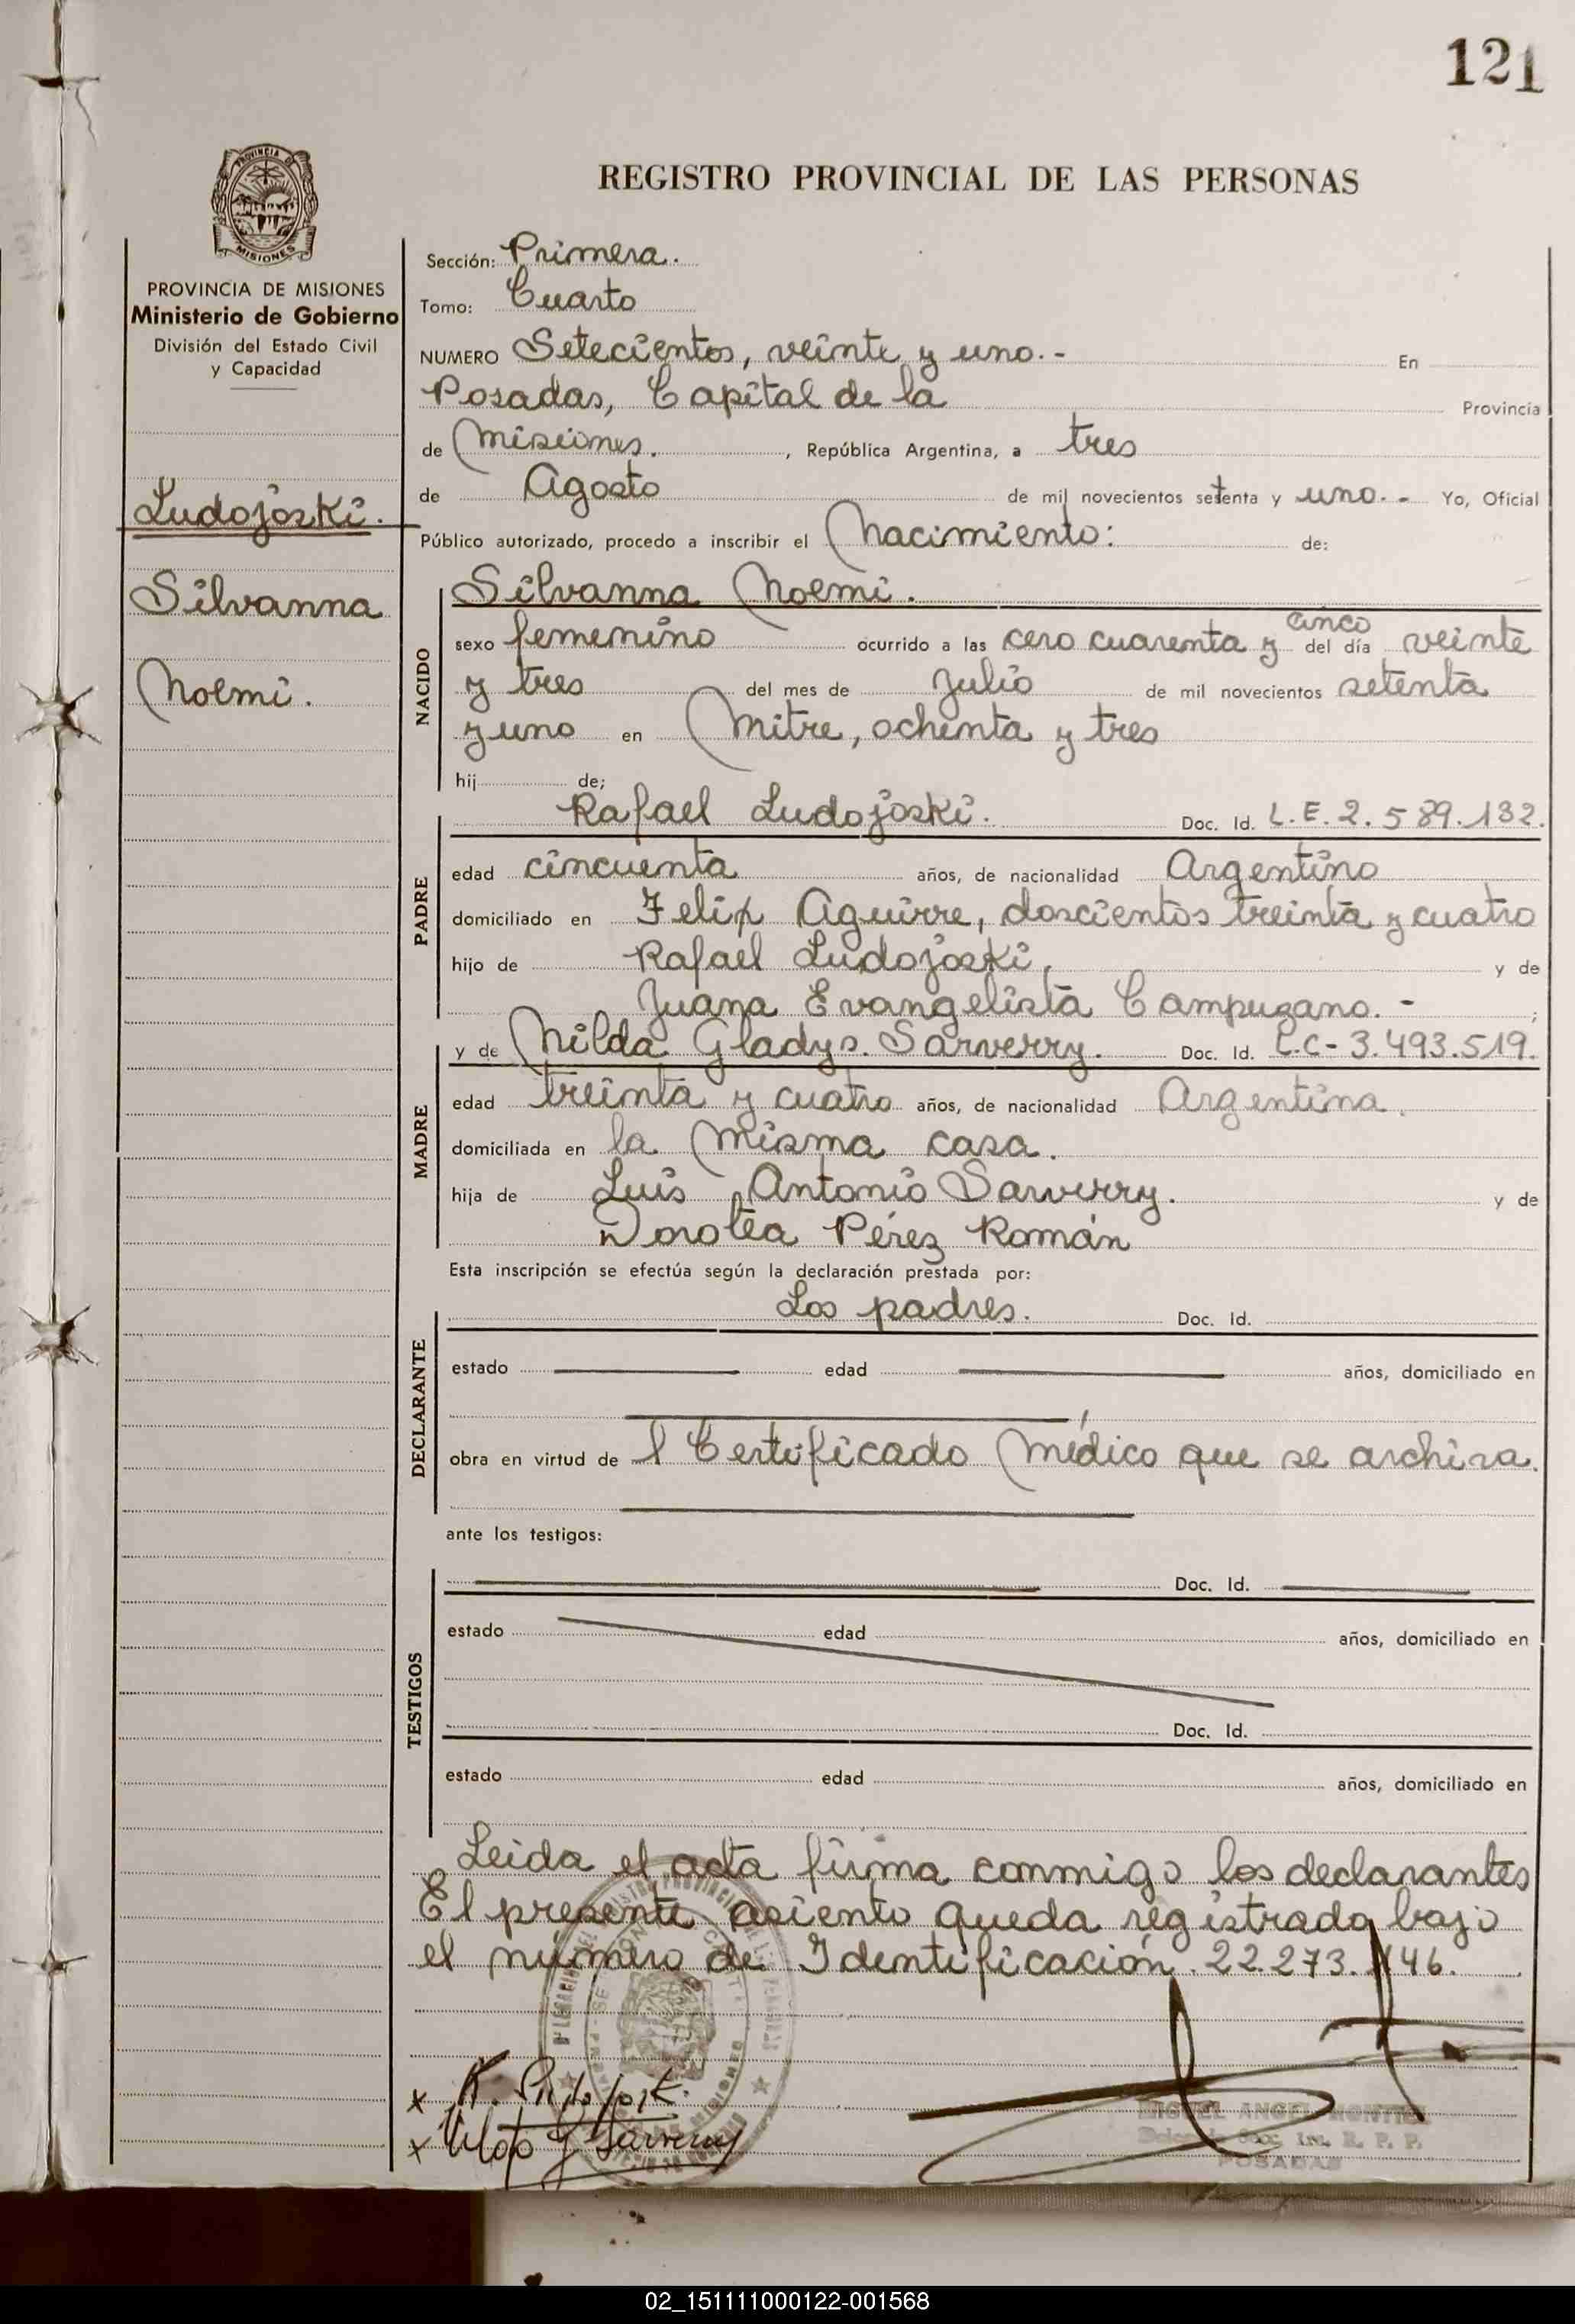 121
REGISTRO PROVINCIAL DE LAS PERSONAS
MISIONES
PROVINCIA DE MISIONES
Ministerio de Gobierno
División del Estado Civil
y Capacidad
Ludojoski.
Silvanna
Noemi.
Sección: Primera.
Tomo: Cuarto
NUMERO Setecientos, veinte y uno.- En
Posadas, Capital de la Provincia
de Misiones. , República Argentina, a tres
de Agosto de mil novecientos setenta y uno.- Yo, Oficial
Público autorizado, procedo a inscribir el Nacimiento: de:
NACIDO
Silvanna Noemi.
sexo femenino ocurrido a las cero cuarenta y cinco del día veinte
y tres del mes de Julio de mil novecientos setenta
y uno en Mitre, ochenta y tres
hij de;
PADRE
Rafael Ludojoski. Doc. Id. L.E. 2.589.132.
edad cincuenta años, de nacionalidad Argentino
domiciliado en Felix Aguirre, doscientos treinta y cuatro
hijo de Rafael Ludojoski, y de
Juana Evangelista Campuzano.- ;
MADRE
y de Nilda Gladys. Sarverry. Doc. Id. L.C- 3.493.519.
edad treinta y cuatro años, de nacionalidad Argentina.
domiciliada en la misma casa.
hija de Luis Antonio Sarverry. y de
Dorotea Pérez Román
Esta inscripción se efectúa según la declaración prestada por:
DECLARANTE
Los padres. Doc. Id.
estado edad años, domiciliado en
obra en virtud de l Certificado Médico que se archiva.
ante los testigos:
TESTIGOS
Doc. Id.
estado edad años, domiciliado en
Doc. Id.
estado edad años, domiciliado en
Leida el acta firma conmigo los declarantes
El presente asiento queda registrado bajo
el número de Identificación. 22.273.146.
MIGUEL ANGEL
R. P. P.
POSADAS
02_151111000122-001568